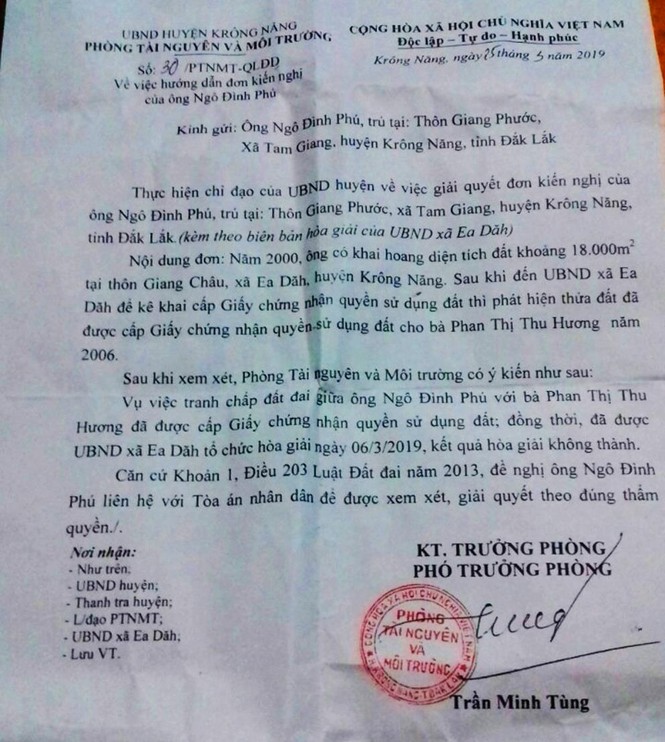 UBND HUYỆN KRÔNG NĂNG
PHÒNG TÀI NGUYÊN VÀ MÔI TRƯỜNG
CỘNG HÒA XÃ HỘI CHỦ NGHĨA VIỆT NAM
Độc lập – Tự do – Hạnh phúc
Số: 30/PTNMT-QLĐĐ
Krông Năng, ngày 25 tháng 3 năm 2019
Về việc hướng dẫn đơn kiến nghị
của ông Ngô Đình Phú
Kính gửi: Ông Ngô Đình Phú, trú tại: Thôn Giang Phước,
Xã Tam Giang, huyện Krông Năng, tỉnh Đắk Lắk
Thực hiện chỉ đạo của UBND huyện về việc giải quyết đơn kiến nghị của
ông Ngô Đình Phú, trú tại: Thôn Giang Phước, xã Tam Giang, huyện Krông Năng,
tỉnh Đắk Lắk.(kèm theo biên bản hòa giải của UBND xã Ea Dăh)
Nội dung đơn: Năm 2000, ông có khai hoang diện tích đất khoảng 18.000m²
tại thôn Giang Châu, xã Ea Dăh, huyện Krông Năng. Sau khi đến UBND xã Ea
Dăh để kê khai cấp Giấy chứng nhận quyền sử dụng đất thì phát hiện thửa đất đã
được cấp Giấy chứng nhận quyền sử dụng đất cho bà Phan Thị Thu Hương năm
2006.
Sau khi xem xét, Phòng Tài nguyên và Môi trường có ý kiến như sau:
Vụ việc tranh chấp đất đai giữa ông Ngô Đình Phú với bà Phan Thị Thu
Hương đã được cấp Giấy chứng nhận quyền sử dụng đất; đồng thời, đã được
UBND xã Ea Dăh tổ chức hòa giải ngày 06/3/2019, kết quả hòa giải không thành.
Căn cứ Khoản 1, Điều 203 Luật Đất đai năm 2013, đề nghị ông Ngô Đình
Phú liên hệ với Tòa án nhân dân để được xem xét, giải quyết theo đúng thẩm
quyền./.
Nơi nhận:
- Như trên;
- UBND huyện;
- Thanh tra huyện;
- L/đạo PTNMT;
- UBND xã Ea Dăh;
- Lưu VT.
KT. TRƯỞNG PHÒNG
PHÓ TRƯỞNG PHÒNG
CỘNG HÒA XÃ HỘI CHỦ NGHĨA VIỆT NAM
PHÒNG
TÀI NGUYÊN
VÀ
MÔI TRƯỜNG
H.KRÔNG NĂNG-T.ĐẮK LẮK
Trần Minh Tùng